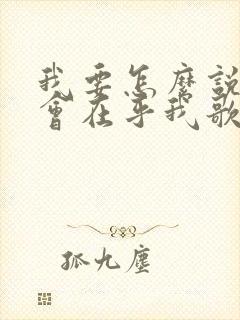 我要怎麼說
會在乎我歌
孤九塵